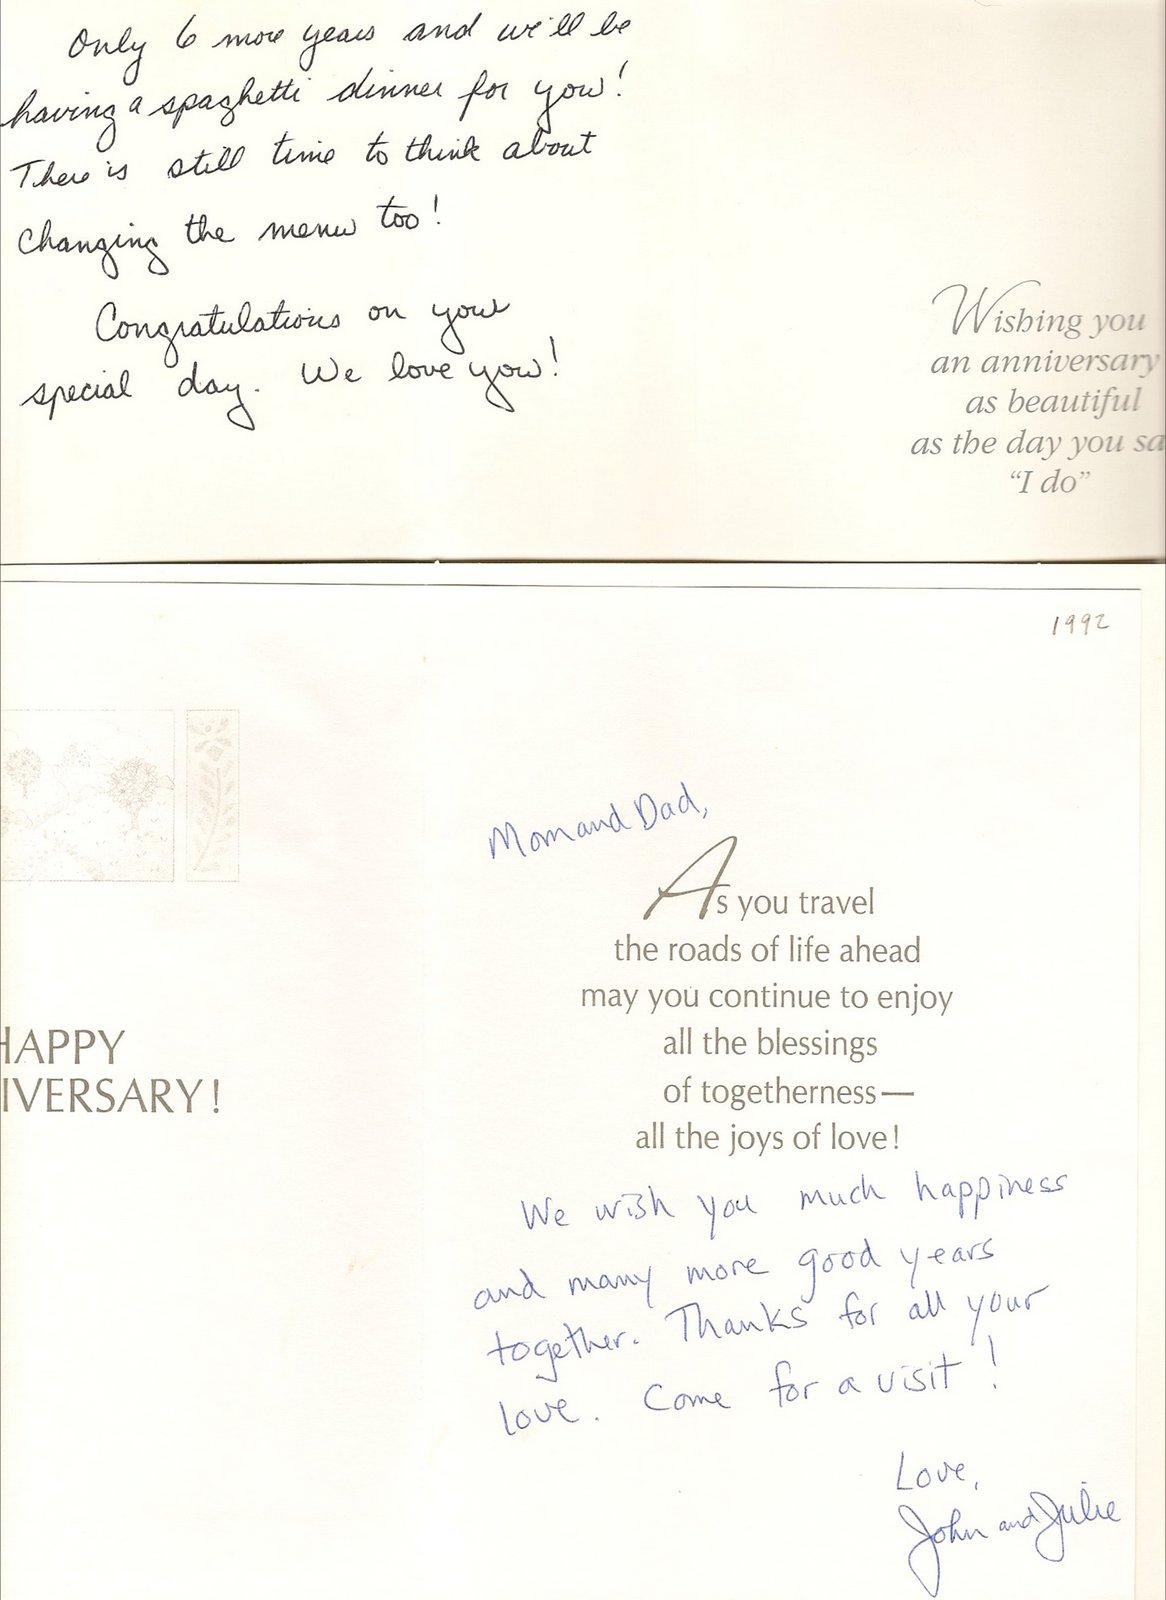 Only 6 more years and we'll be
having a spaghetti dinner for you!
There is still time to think about
changing the menu too!
Congratulations on your
special day. We love you!
Wishing you
an anniversary
as beautiful
as the day you sa
"I do"
1992
HAPPY
IVERSARY!
Mom and Dad,
As you travel
the roads of life ahead
may you continue to enjoy
all the blessings
of togetherness—
all the joys of love!
We wish you much happiness
and many more good years
together. Thanks for all your
love. Come for a visit!
Love,
John and Julie